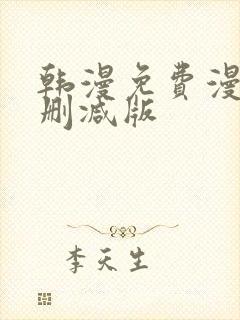 韩漫免费漫
删减版
李天生